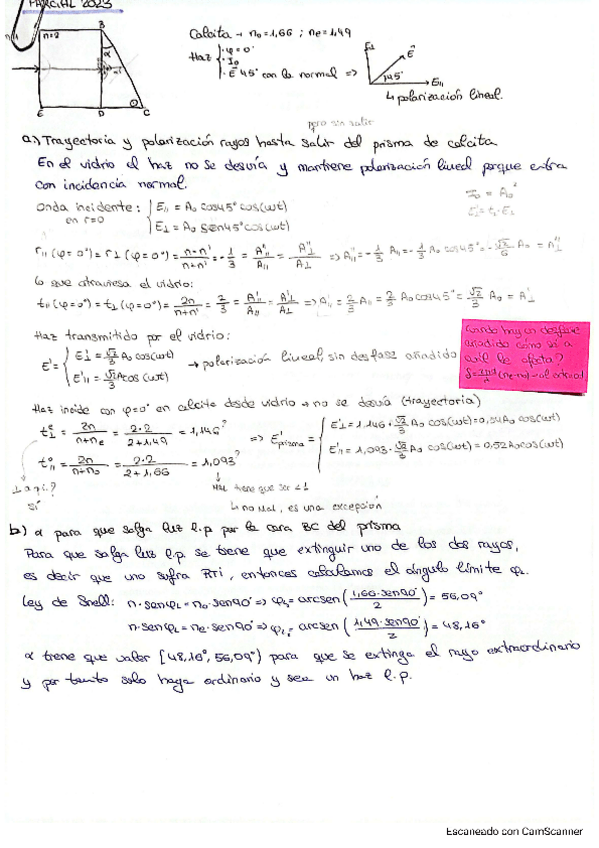 PARCIAL 2023
n=2
B
α
E
D
C
Calcita → no=1,66 ; ne=1,49
Haz { · φ=0° · I₀ · E⃗ 45° con la normal ⇒
E⊥
E⃗
45°
E∥
↳ polarización lineal.
pero sin salir
a) Trayectoria y polarización rayos hasta salir del prisma de calcita
En el vidrio el haz no se desvía y mantiene polarización lineal porque entra
con incidencia normal.
I₀ = A₀²
Onda incidente: { E∥ = A₀ cos45° cos(ωt)
en r=0 E⊥ = A₀ sen45° cos(ωt)
r∥(φ=0°) = r⊥(φ=0°) = n-n'/n+n' = -1/3 = A''∥/A∥ = A''⊥/A⊥ ⇒ A''∥ = -1/3 A∥ = -1/3 A₀ cos45° = -√2/6 A₀ = A''⊥
lo que atraviesa el vidrio:
t∥(φ=0°) = t⊥(φ=0°) = 2n/n+n' = 2/3 = A'∥/A∥ = A'⊥/A⊥ ⇒ A'∥ = 2/3 A∥ = 2/3 A₀ cos45° = √2/3 A₀ = A'⊥
Haz transmitido por el vidrio:
E' = { E'⊥ = √2/3 A₀ cos(ωt)
E'∥ = √2/3 A₀ cos(ωt)
→ polarización lineal, sin desfase añadido
Cuando hay un desfase
añadido cómo si a
Haz incide con φ=0° en calcita desde vidrio → no se desvía (trayectoria)
t⊥ᵉ = 2n/n+ne = 2·2/2+1,49 = 1,146?
t∥ᵒ = 2n/n+no = 2·2/2+1,66 = 1,093?
⇒ E'prisma = { E'⊥ = 1,146 · √2/3 A₀ cos(ωt) = 0,54A₀ cos(ωt)
E'∥ = 1,093 · √2/3 A₀ cos(ωt) = 0,52A₀cos(ωt)
⊥ aquí?
sí
tiene que ser <1
↳ no Mal, es una excepción
b) α para que salga luz l.p por la cara BC del prisma
Para que salga luz l.p. se tiene que extinguir uno de los dos rayos,
es decir que uno sufra RTI, entonces calculamos el ángulo límite φL.
Ley de Snell: n·senφL = no·sen90° ⇒ φL = arcsen(1,66·sen90/2) = 56,09°
n·senφL = ne·sen90° ⇒ φL = arcsen(1,49·sen90/2) = 48,16°
α tiene que valer [48,16°, 56,09°) para que se extinga el rayo extraordinario
y por tanto solo haya ordinario y sea un haz l.p.
Escaneado con CamScanner